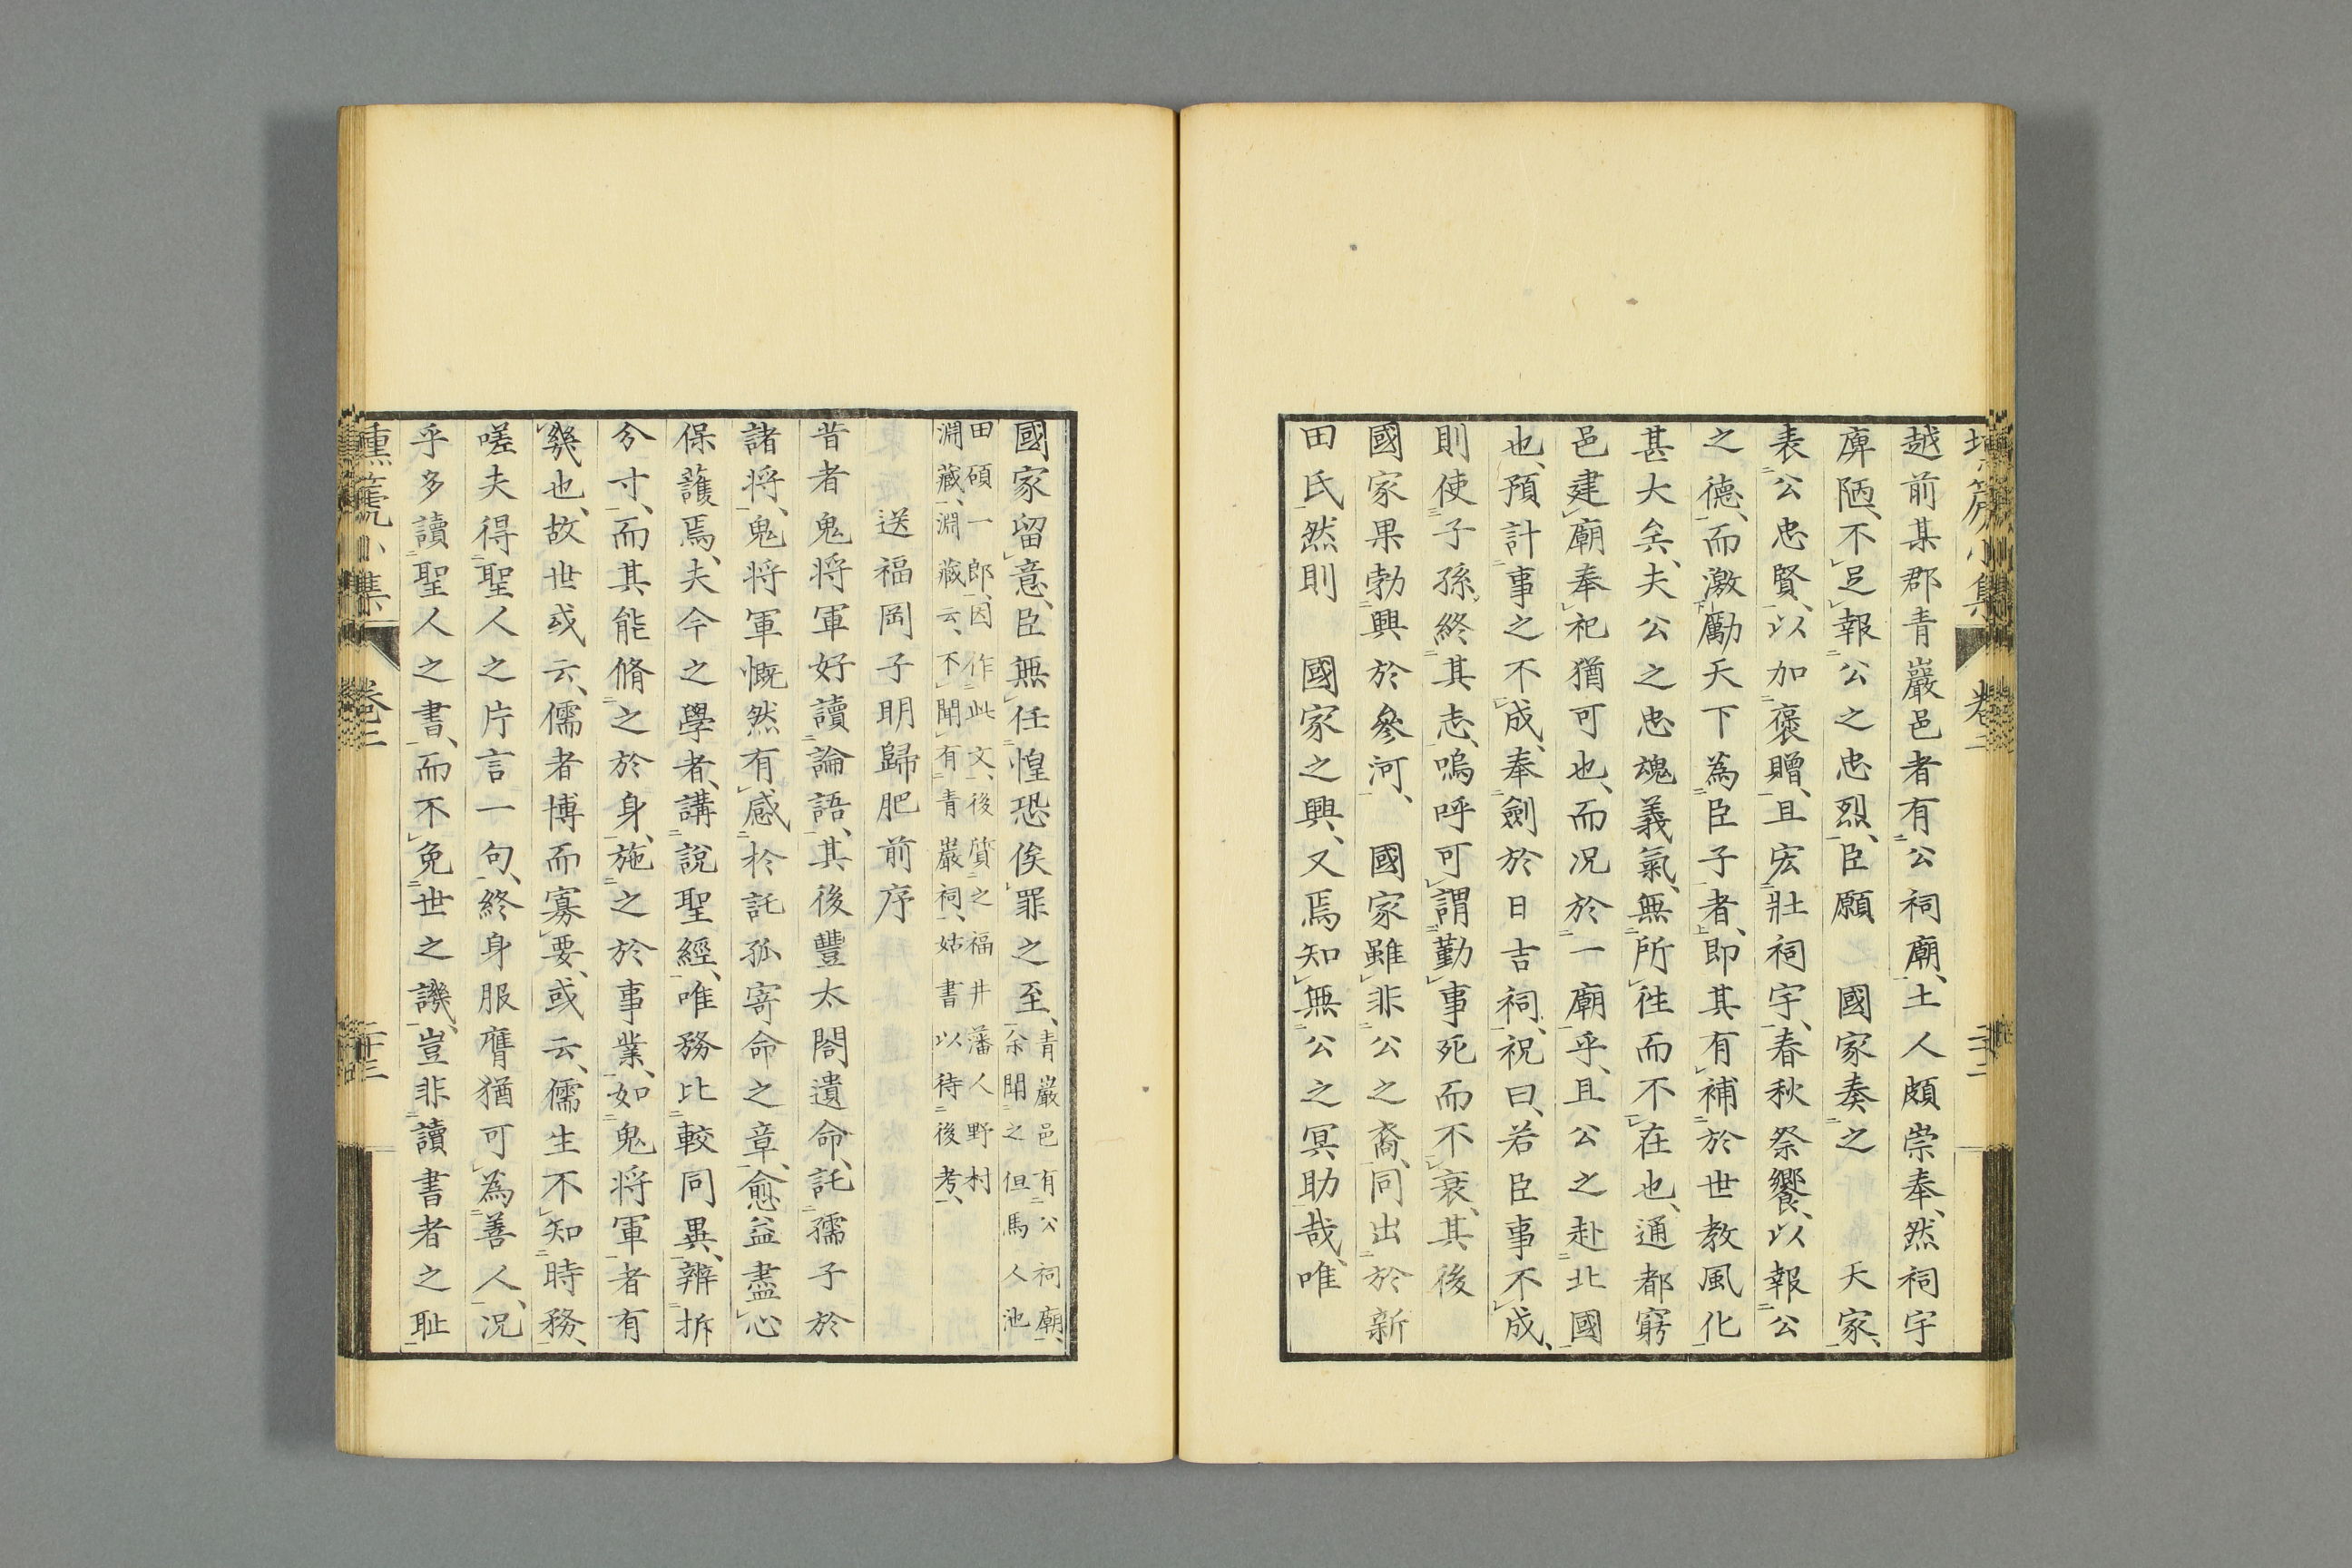 越前某郡青巖邑者有公祠廟、土人頗崇奉、然祠宇
庳陋、不足報公之忠烈、臣願　國家奏之　天家、
表公忠賢、以加褒贈、且宏壯祠宇、春秋祭饗、以報公
之德、而激勵天下為臣子者、即其有補於世教風化
甚大矣、夫公之忠魂義氣、無所徃而不在也、通都窮
邑建廟奉祀猶可也、而况於一廟乎、且公之赴北國
也、預計事之不成、奉劍於日吉祠、祝曰、若臣事不成、
則使子孫終其志、嗚呼可謂勤事死而不衰、其後
國家果勃興於參河、　國家雖非公之裔、同出於新
田氏然則　國家之興、又焉知無公之冥助哉、唯
國家留意、臣無任惶恐俟罪之至、
青巖邑有公祠廟、
余聞之但馬人池
田碩一郎、因作此文、後質之福井藩人野村
淵藏、淵藏云、不聞有青巖祠、姑書以待後考、
送福岡子明歸肥前序
昔者鬼将軍好讀論語、其後豐太閤遺命、託孺子於
諸将、鬼将軍慨然有感於託孤寄命之章、愈益盡心
保護焉、夫今之學者、講說聖經、唯務比較同異、辨拆
分寸、而其能脩之於身、施之於事業、如鬼将軍者有
幾也、故世或云、儒者博而寡要、或云、儒生不知時務、
嗟夫得聖人之片言一句、終身服膺猶可為善人、况
乎多讀聖人之書、而不免世之譏、豈非讀書者之耻
壎篪小集
卷二